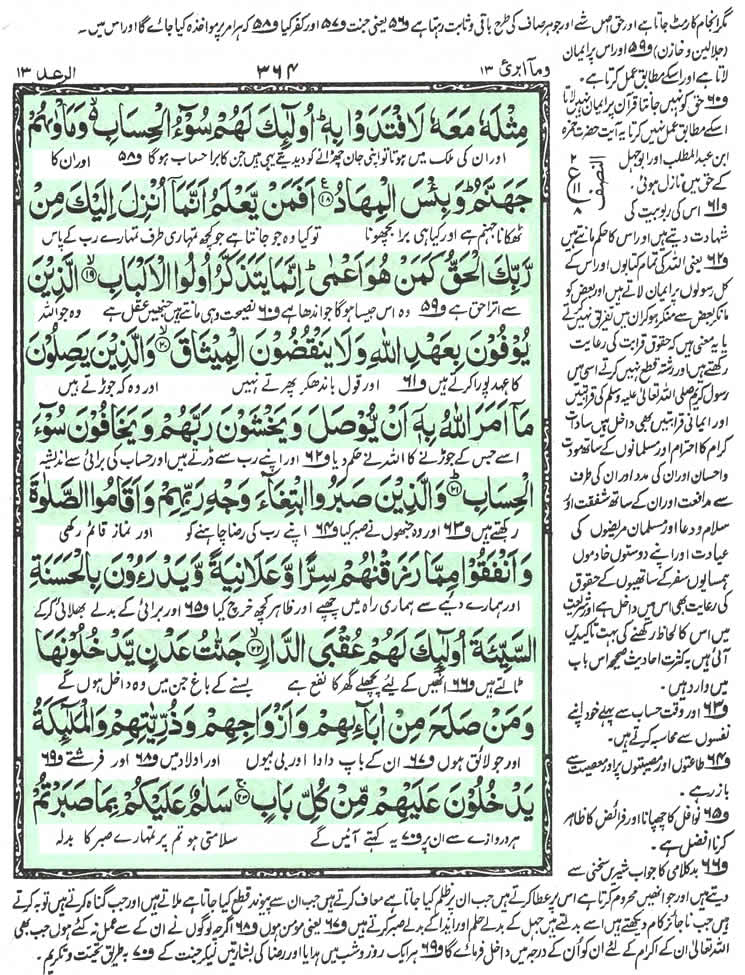 مگر انجام کار مٹ جاتا ہے اور حق اصل شے اور جوہر صاف کی طرح باقی و ثابت رہتا ہے و۵۶ یعنی جنت و۵۷ اور کفر کیا و۵۸ کہ ہر امر پر مواخذہ کیا جائے گا اور اس میں سے
(جلالین و خازن) و۵۹ اور اس پر ایمان
لاتا ہے اور اسکے مطابق عمل کرتا ہے۔
و۶۰ حق کو نہیں جانتا قرآن پر ایمان نہیں لاتا
اسکے مطابق عمل نہیں کرتا یہ آیت حضرت حمزہ
ابن عبدالمطلب اور ابوجہل
کے حق میں نازل ہوئی۔
و۶۱ اس کی ربوبیت کی
شہادت دیتے ہیں اور اس کا حکم مانتے ہیں
و۶۲ یعنی اللہ کی تمام کتابوں اور اس کے
کل رسولوں پر ایمان لاتے ہیں اور بعض کو
مان کر بعض سے منکر ہو کر ان میں تفریق نہیں کرتے
یا یہ معنی ہیں کہ حقوق قرابت کی رعایت
رکھتے ہیں اور رشتہ قطع نہیں کرتے اسی میں
رسول کریم صلی اللہ تعالیٰ علیہ وسلم کی قرابتیں
اور ایمانی قرابتیں بھی داخل ہیں سادات
کرام کا احترام اور مسلمانوں کے ساتھ مودت
و احسان اور ان کی مدد اور ان کی طرف
سے مدافعت اور ان کے ساتھ شفقت اور
سلام و دعا اور مسلمان مریضوں کی
عیادت اور اپنے دوستوں خادموں
ہمسایوں سفر کے ساتھیوں کے حقوق
کی رعایت بھی اس میں داخل ہے اور شریعت
میں اس کا لحاظ رکھنے کی بہت تاکیدیں
آئی ہیں بکثرت احادیث صحیحہ اس باب
میں وارد ہیں۔
و۶۳ اور وقت حساب سے پہلے خود اپنے
نفسوں سے محاسبہ کرتے ہیں۔
و۶۴ طاعتوں اور مصیبتوں پر اور معصیت سے
باز رہے۔
و۶۵ نوافل کا چھپانا اور فرائض کا ظاہر
کرنا افضل ہے۔
و۶۶ بدکلامی کا جواب شیریں سخنی سے
الرعد ۱۳
۳۶۴
وما ابرئ ۱۳
النصف
۲
ع
۱۱
۸
مِثْلَهٗ مَعَهٗ لَافْتَدَوْا بِهٖ ؕ اُولٰٓئِكَ لَهُمْ سُوْٓءُ الْحِسَابِ ۙ وَمَاْوٰىهُمْ
اور ان کی ملک میں ہوتا تو اپنی جان چھڑانے کو دیدیتے یہی ہیں جن کا برا حساب ہوگا و۵۸ اور ان کا
جَهَنَّمُ ؕ وَبِئْسَ الْمِهَادُ ۠﴿۱۸﴾ اَفَمَنْ يَّعْلَمُ اَنَّمَاۤ اُنْزِلَ اِلَيْكَ مِنْ
ٹھکانا جہنم ہے اور کیا ہی برا بچھونا تو کیا وہ جو جانتا ہے جو کچھ تمہاری طرف تمہارے رب کے پاس
رَّبِّكَ الْحَقُّ كَمَنْ هُوَ اَعْمٰى ؕ اِنَّمَا يَتَذَكَّرُ اُولُوا الْاَلْبَابِ ۙ﴿۱۹﴾ الَّذِيْنَ
سے اترا حق ہے و۵۹ وہ اس جیسا ہوگا جو اندھا ہے و۶۰ نصیحت وہی مانتے ہیں جنہیں عقل ہے وہ جو اللہ
يُوْفُوْنَ بِعَهْدِ اللّٰهِ وَلَا يَنْقُضُوْنَ الْمِيْثَاقَ ۙ﴿۲۰﴾ وَالَّذِيْنَ يَصِلُوْنَ
کا عہد پورا کرتے ہیں و۶۱ اور قول باندھ کر پھرتے نہیں اور وہ کہ جوڑتے ہیں
مَاۤ اَمَرَ اللّٰهُ بِهٖۤ اَنْ يُّوْصَلَ وَيَخْشَوْنَ رَبَّهُمْ وَيَخَافُوْنَ سُوْٓءَ
اسے جس کے جوڑنے کا اللہ نے حکم دیا و۶۲ اور اپنے رب سے ڈرتے ہیں اور حساب کی برائی سے اندیشہ
الْحِسَابِ ؕ﴿۲۱﴾ وَالَّذِيْنَ صَبَرُوا ابْتِغَآءَ وَجْهِ رَبِّهِمْ وَاَقَامُوا الصَّلٰوةَ
رکھتے ہیں و۶۳ اور وہ جنہوں نے صبر کیا و۶۴ اپنے رب کی رضا چاہنے کو اور نماز قائم رکھی
وَاَنْفَقُوْا مِمَّا رَزَقْنٰهُمْ سِرًّا وَّعَلَانِيَةً وَّيَدْرَءُوْنَ بِالْحَسَنَةِ
اور ہمارے دیئے سے ہماری راہ میں چھپے اور ظاہر کچھ خرچ کیا و۶۵ اور برائی کے بدلے بھلائی کر کے
السَّيِّئَةَ اُولٰٓئِكَ لَهُمْ عُقْبَى الدَّارِ ۙ﴿۲۲﴾ جَنّٰتُ عَدْنٍ يَّدْخُلُوْنَهَا
ٹالتے ہیں و۶۶ انھیں کے لیے پچھلے گھر کا نفع ہے بسنے کے باغ جن میں وہ داخل ہوں گے
وَمَنْ صَلَحَ مِنْ اٰبَآئِهِمْ وَاَزْوَاجِهِمْ وَذُرِّيّٰتِهِمْ وَالْمَلٰٓئِكَةُ
اور جو لائق ہوں و۶۷ ان کے باپ دادا اور بی بیوں اور اولاد میں و۶۸ اور فرشتے و۶۹
يَدْخُلُوْنَ عَلَيْهِمْ مِّنْ كُلِّ بَابٍ ۚ﴿۲۳﴾ سَلٰمٌ عَلَيْكُمْ بِمَا صَبَرْتُمْ
ہر دروازے سے ان پر و۷۰ یہ کہتے آئیں گے سلامتی ہو تم پر تمہارے صبر کا بدلہ
دیتے ہیں اور جو انھیں محروم کرتا ہے اس پر عطا کرتے ہیں جب ان پر ظلم کیا جاتا ہے معاف کرتے ہیں جب ان سے پیوند قطع کیا جاتا ہے ملاتے ہیں اور جب گناہ کرتے ہیں توبہ کرتے
ہیں جب ناجائز کام دیکھتے ہیں اسے بدلتے ہیں جہل کے بدلے حلم اور ایذا کے بدلے صبر کرتے ہیں و۶۷ یعنی مومن ہوں و۶۸ اگرچہ لوگوں نے ان کے سے عمل نہ کئے ہوں جب بھی
اللہ تعالیٰ ان کے اکرام کے لئے ان کو ان کے درجہ میں داخل فرمائے گا و۶۹ ہر ایک روز و شب میں ہدایا اور رضا کی بشارتیں لیکر جنت کے و۷۰ بہ طریق تحیت و تکریم۔